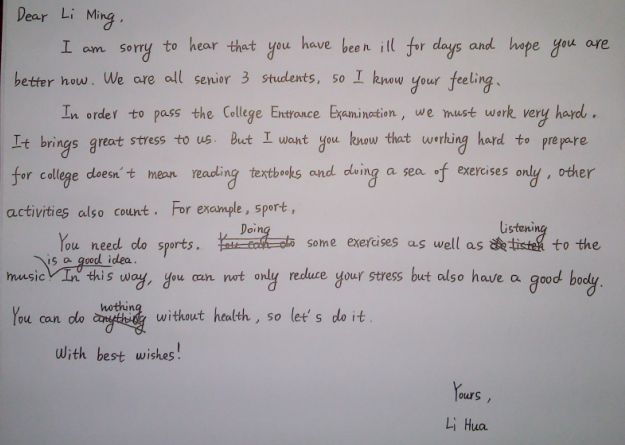 Dear Li Ming,
I am sorry to hear that you have been ill for days and hope you are
better now. We are all senior 3 students, so I know your feeling.
In order to pass the College Entrance Examination, we must work very hard.
It brings great stress to us. But I want you know that working hard to prepare
for college doesn't mean reading textbooks and doing a sea of exercises only, other
activities also count. For example, sport,
Doing Listening
You need do sports. You can do some exercises as well as listen to the
is a good idea.
music. In this way, you can not only reduce your stress but also have a good body.
nothing
You can do anything without health, so let's do it.
With best wishes!
Yours,
Li Hua